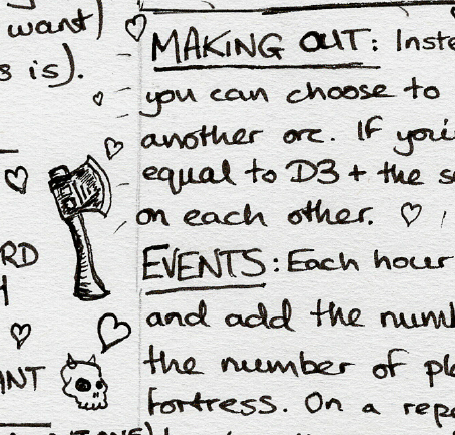 want)
s is).
RD
H
ANT
MAKING OUT: Inste
you can choose to
another orc. If you'
equal to D3 + the s
on each other.
EVENTS: Each hour
and add the numb
the number of pl
fortress. On a rep